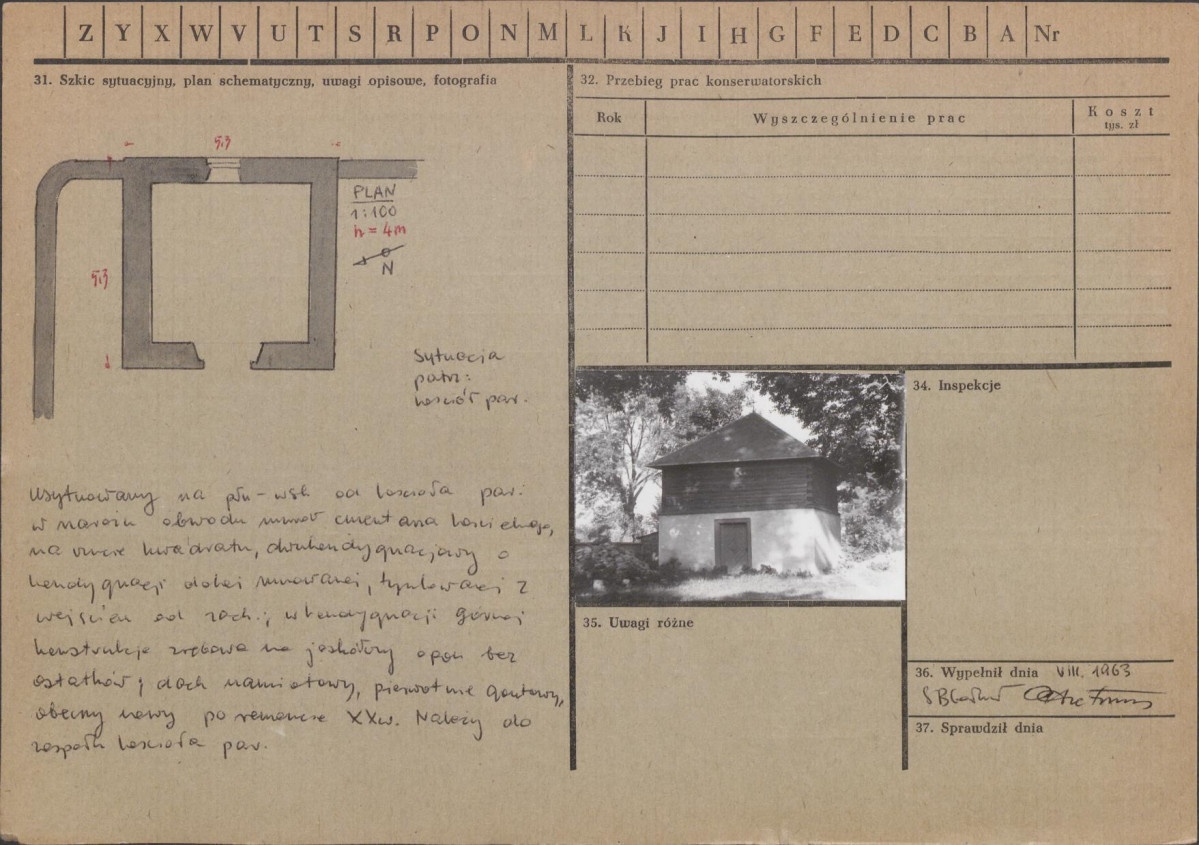 Z Y X W V U T S R P O N M L K J I H G F E D C B A Nr
31. Szkic sytuacyjny, plan schematyczny, uwagi opisowe, fotografia
5,3
PLAN
1:100
h = 4m
N
5,3
Sytuacja
patrz:
kościół par.
Usytuowany na płn-wsch od kościoła par.
w narożu obwodu murów cmentarza kościelnego,
na rzucie kwadratu, dwukondygnacjowy o
kondygnacji dolnej murowanej, tynkowanej z
wejściem od zach.; w kondygnacji górnej
konstrukcja zrębowa na jaskółczy ogon bez
ostatków; dach namiotowy, pierwotnie gontowy,
obecny nowy po remoncie XXw. Należy do
zespołu kościoła par.
32. Przebieg prac konserwatorskich
Rok Wyszczególnienie prac Koszt
tys. zł
34. Inspekcje
35. Uwagi różne
36. Wypełnił dnia VIII. 1963
37. Sprawdził dnia